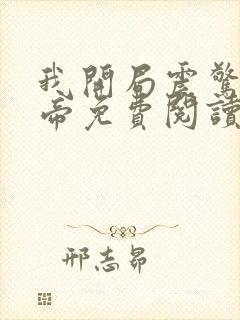 我開局震驚
帝免費閱讀
邢志昴